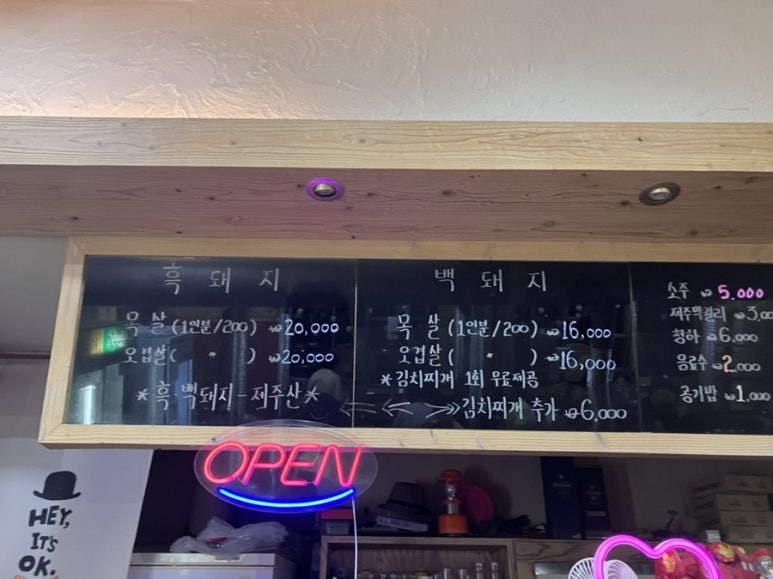 흑 돼 지
목 살 (1인분/200) ₩20,000
오겹살 ( 〃 ) ₩20,000
*흑·백돼지-제주산*
백 돼 지
목 살 (1인분/200) ₩16,000
오겹살 ( 〃 ) ₩16,000
*김치찌개 1회 무료제공
김치찌개 추가 ₩6,000
소주 ₩5.000
제주막걸리 ₩3,00
청하 ₩6,000
음료수 ₩2,000
공기밥 ₩1,000
OPEN
HEY,
IT'S
OK.